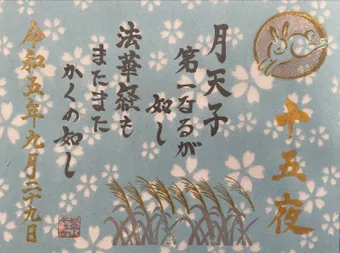 十五夜
月天子
第一なるが
如し
法華経も
またまた
かくの如し
令和五年九月二十九日